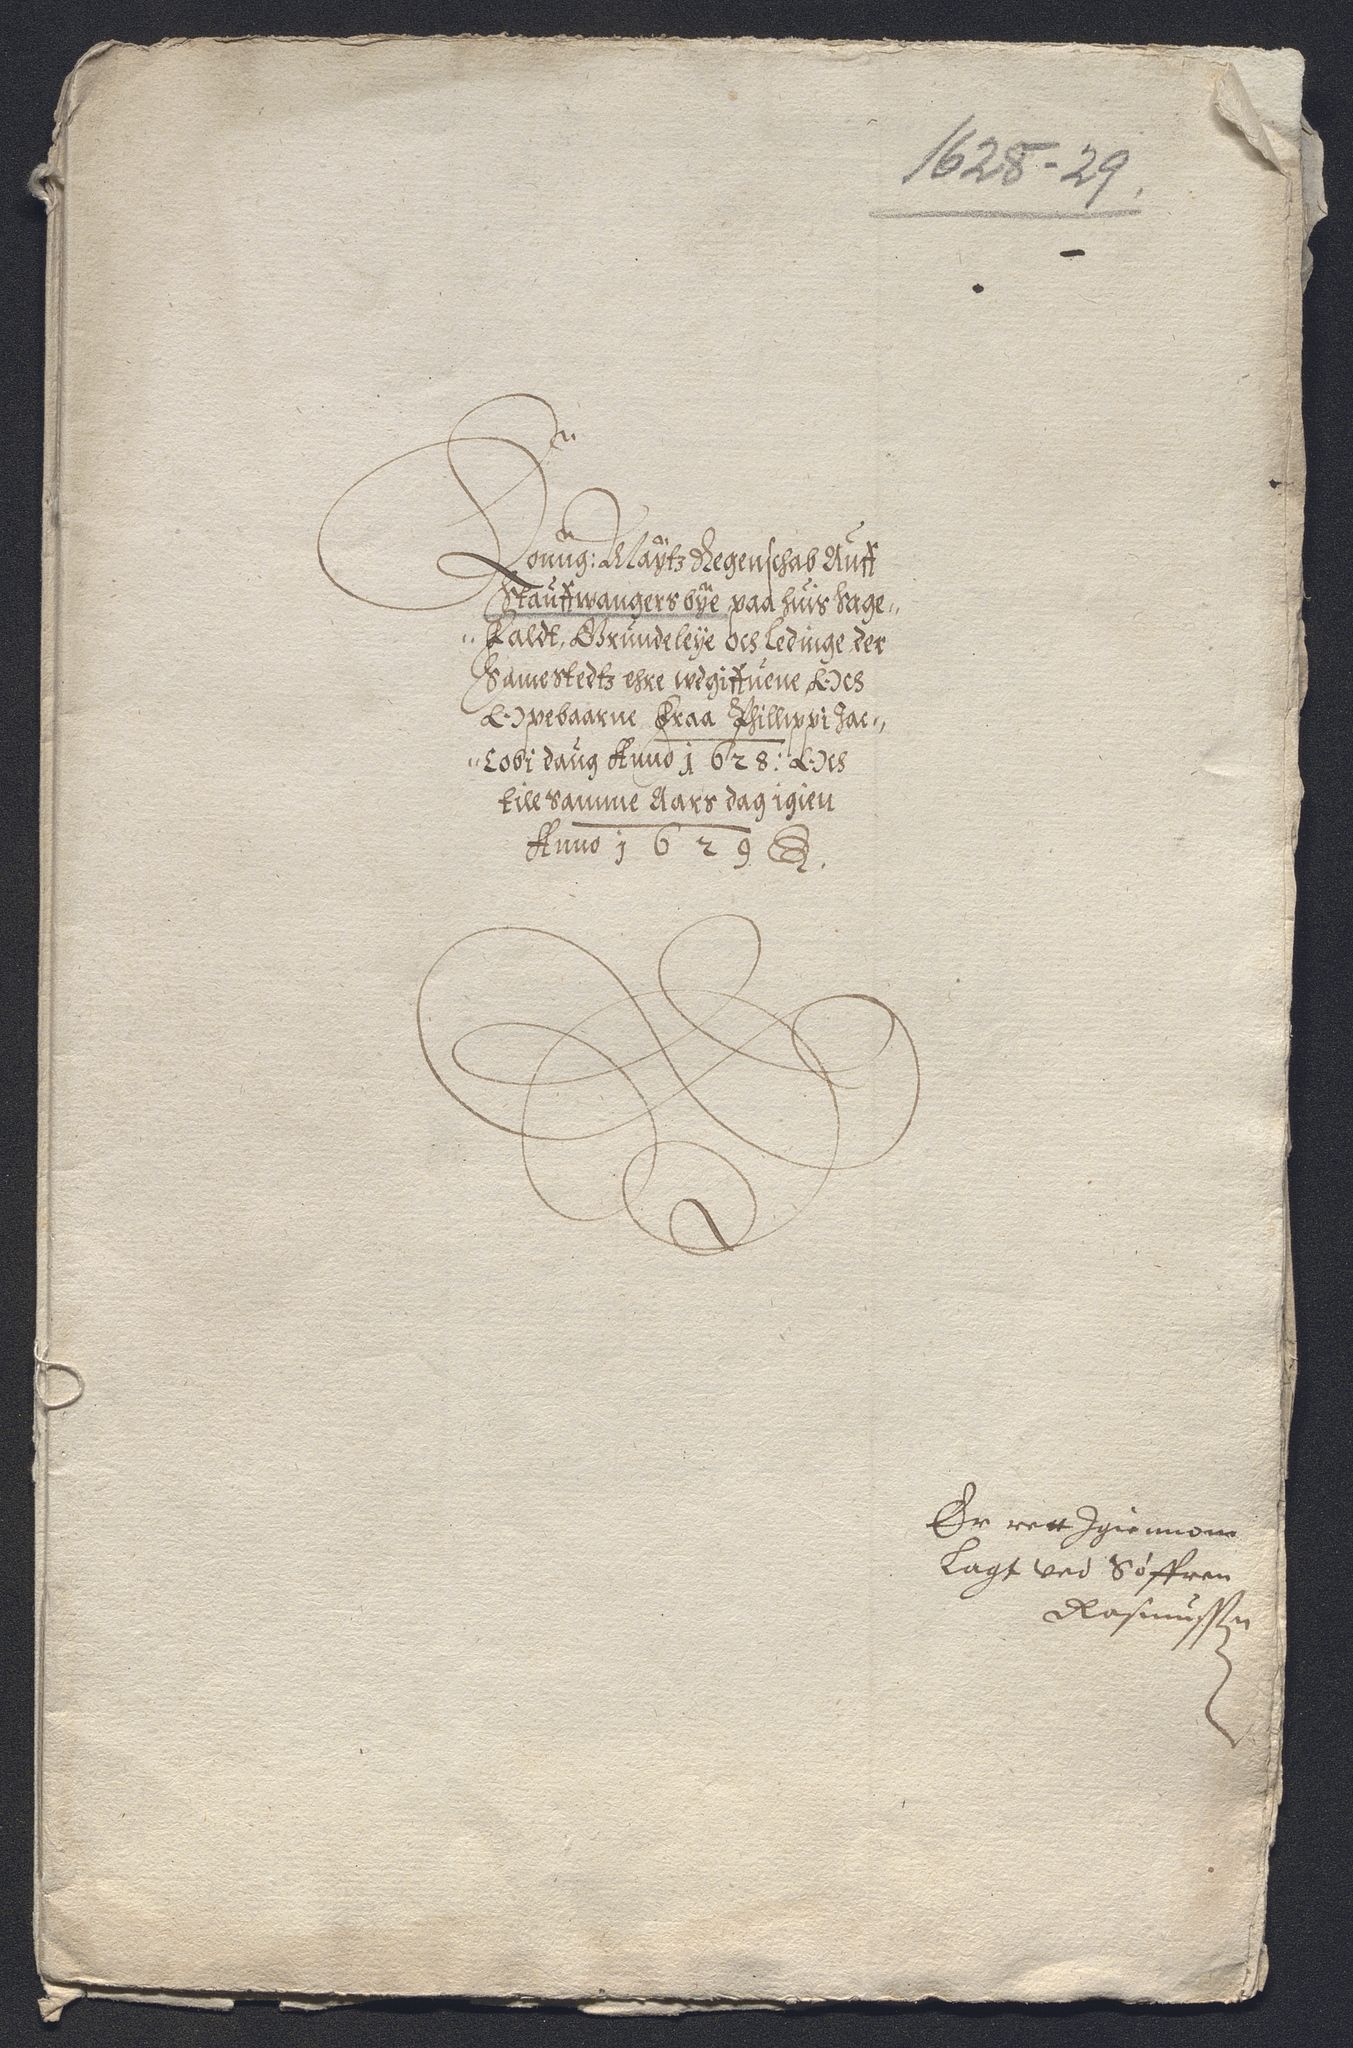 1628-29.
Konng: Maÿtz Regenschab Auff
Stauffwangers bÿe paa huis Sage„
„faldt, Grundeleÿe och Ledinge der
Samestedtz ehre wdgiffuene Och
Opebaarne fraa Phillippi Jac„
„Cobi daug Anno 1628: Och
till Samme Aars dag igien
Anno 1629
Er rett Igiennom
Lagt ved Søffren
Rasmussen